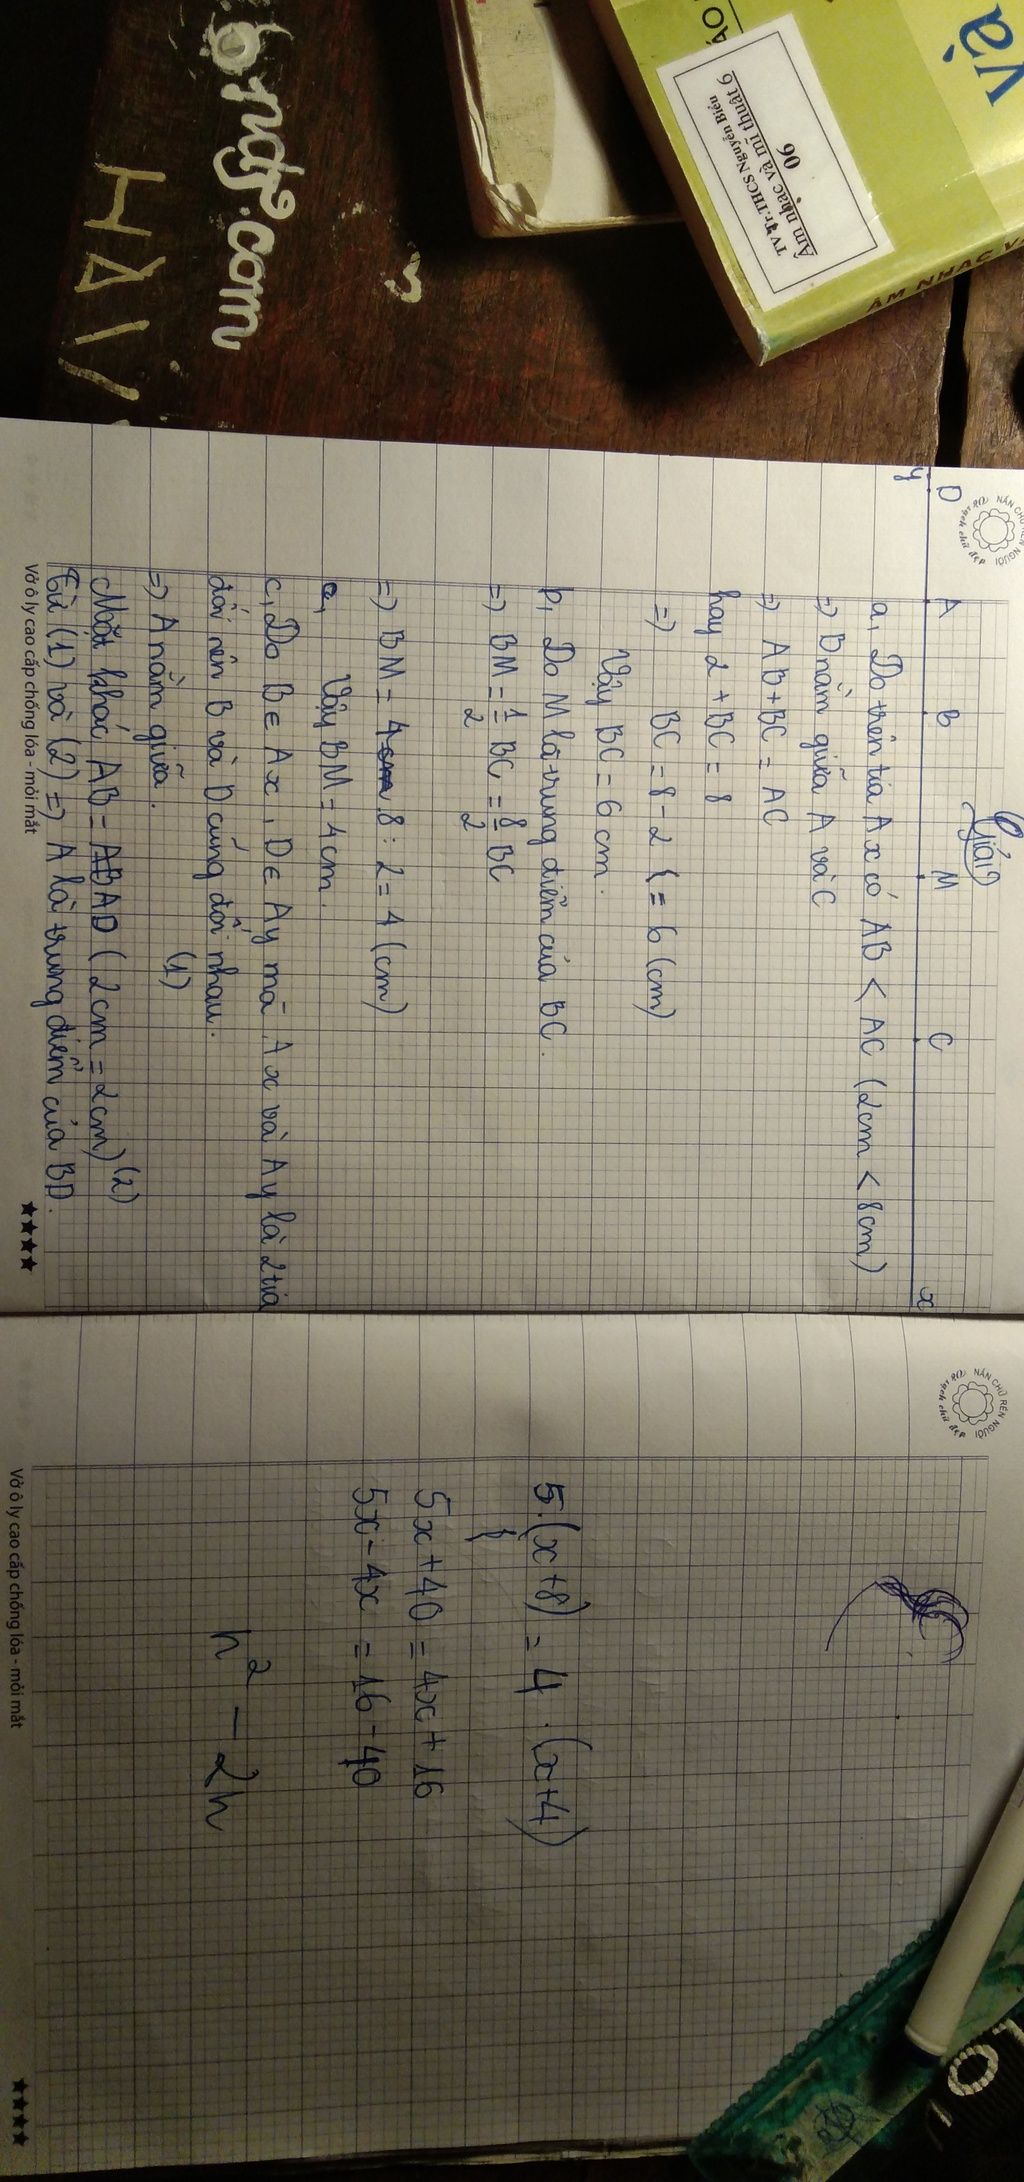 và
ÁO
TV Tr.THCS Nguyễn Biểu
Âm nhạc và mĩ thuật 6
06
ÂM NHẠC V
ngr.com
HAV
NẮN CHỮ RÈN NGƯỜI
Giải
y D A B M C x
a, Do trên tia Ax có AB < AC (2cm < 8cm)
=) B nằm giữa A và C
=) AB + BC = AC
hay 2 + BC = 8
=) BC = 8 - 2 = 6 (cm)
Vậy BC = 6 cm.
b, Do M là trung điểm của BC.
=) BM = 1/2 BC = 8/2 BC
=) BM = 4cm 8 : 2 = 4 (cm)
Vậy BM = 4 cm.
c, Do B ∈ Ax, D ∈ Ay mà Ax và Ay là 2 tia
đối nên B và D cũng đối nhau.
=) A nằm giữa. (1)
Mặt khác AB = AB AD (2cm = 2cm) (2)
Từ (1) và (2) =) A là trung điểm của BD.
Vở ô ly cao cấp chống lóa - mỏi mắt
★★★★
NẮN CHỮ RÈN NGƯỜI
5.(x+8) = 4 . (x+4)
5x + 40 = 4x + 16
5x - 4x = 16 - 40
n² - 2n
Vở ô ly cao cấp chống lóa - mỏi mắt
★★★★